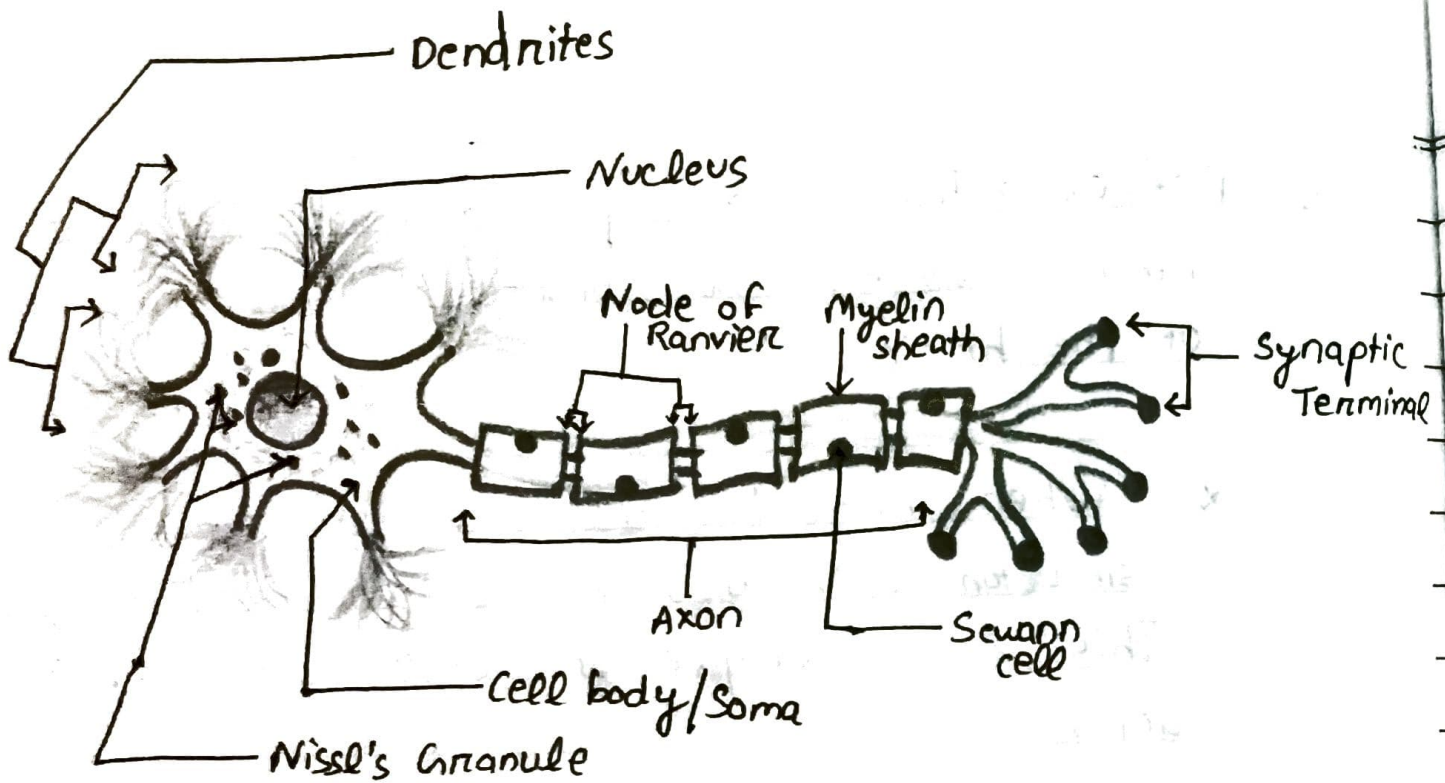 Dendrites
Nucleus
Node of
Ranvier
Myelin
sheath
Synaptic
Terminal
Axon
Scwann
cell
Cell body/Soma
Nissl's Granule